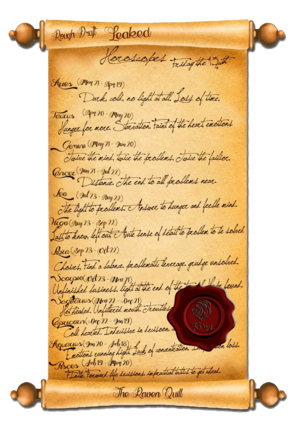 Rough Draft Leaked
Horoscopes Friday the
Aries (May 21 - Apr 19)
Dark, cold, no light at all. Loss of time.
Taurus (Apr 20 - May 20)
Hunger for more. Starvation. Faint of the heart emotions.
Gemini (May 21 - Jun 20)
Twice the mind, twice the problems, twice the
Cancer (Jun 21 - Jul 22)
Distance. The end to all problems near.
Leo (Jul 23 - Aug 22)
The light to problems. Answer to hunger and feeble mind.
Virgo (Aug 23 - Sep 22)
to know, left out. Acute sense of to problem to be solved.
Libra (Sep 23 - Oct 22)
Choices. Find a balance, problematic leverage, grudge unsolved.
Scorpio (Oct 23 - Nov 21)
Unfinished business light at the end of the found.
Sagittarius (Nov 22 - Dec 21)
Unfiltered mouth.
Capricorn (Dec 22 - Jan 19)
Cold hearted. in decision
Aquarius (Jan 20 - Feb 18)
Emotions running high. Lack of concentration. loss.
Pisces (Feb 19 - May 20)
Forward life sessions to get ahead.
The Raven Quill